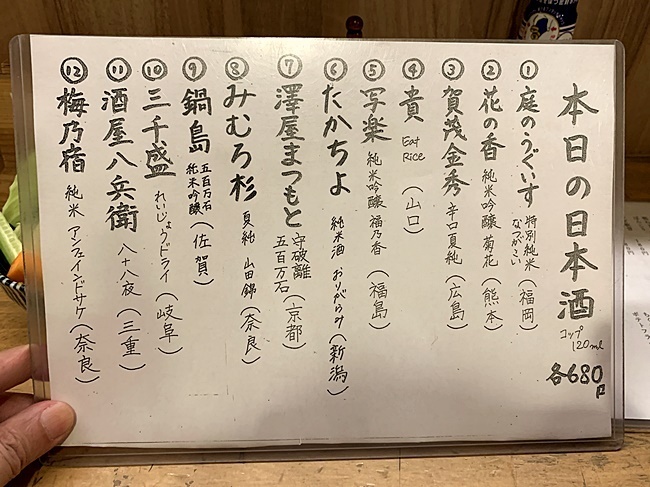 本日の日本酒
コップ
120ml
各680円
①庭のうぐいす 特別純米 なつがこい (福岡)
②花の香 純米吟醸 菊花 (熊本)
③賀茂金秀 辛口夏純 (広島)
④貴 Eat Rice (山口)
⑤写楽 純米吟醸 福乃香 (福島)
⑥たかちよ 純米酒 おりがらみ (新潟)
⑦澤屋まつもと 守破離 五百万石 (京都)
⑧みむろ杉 夏純 山田錦 (奈良)
⑨鍋島 五百万石 純米吟醸 (佐賀)
⑩三千盛 れいじょうドライ (岐阜)
⑪酒屋八兵衛 八十八夜 (三重)
⑫梅乃宿 純米 アンフェインドサケ (奈良)